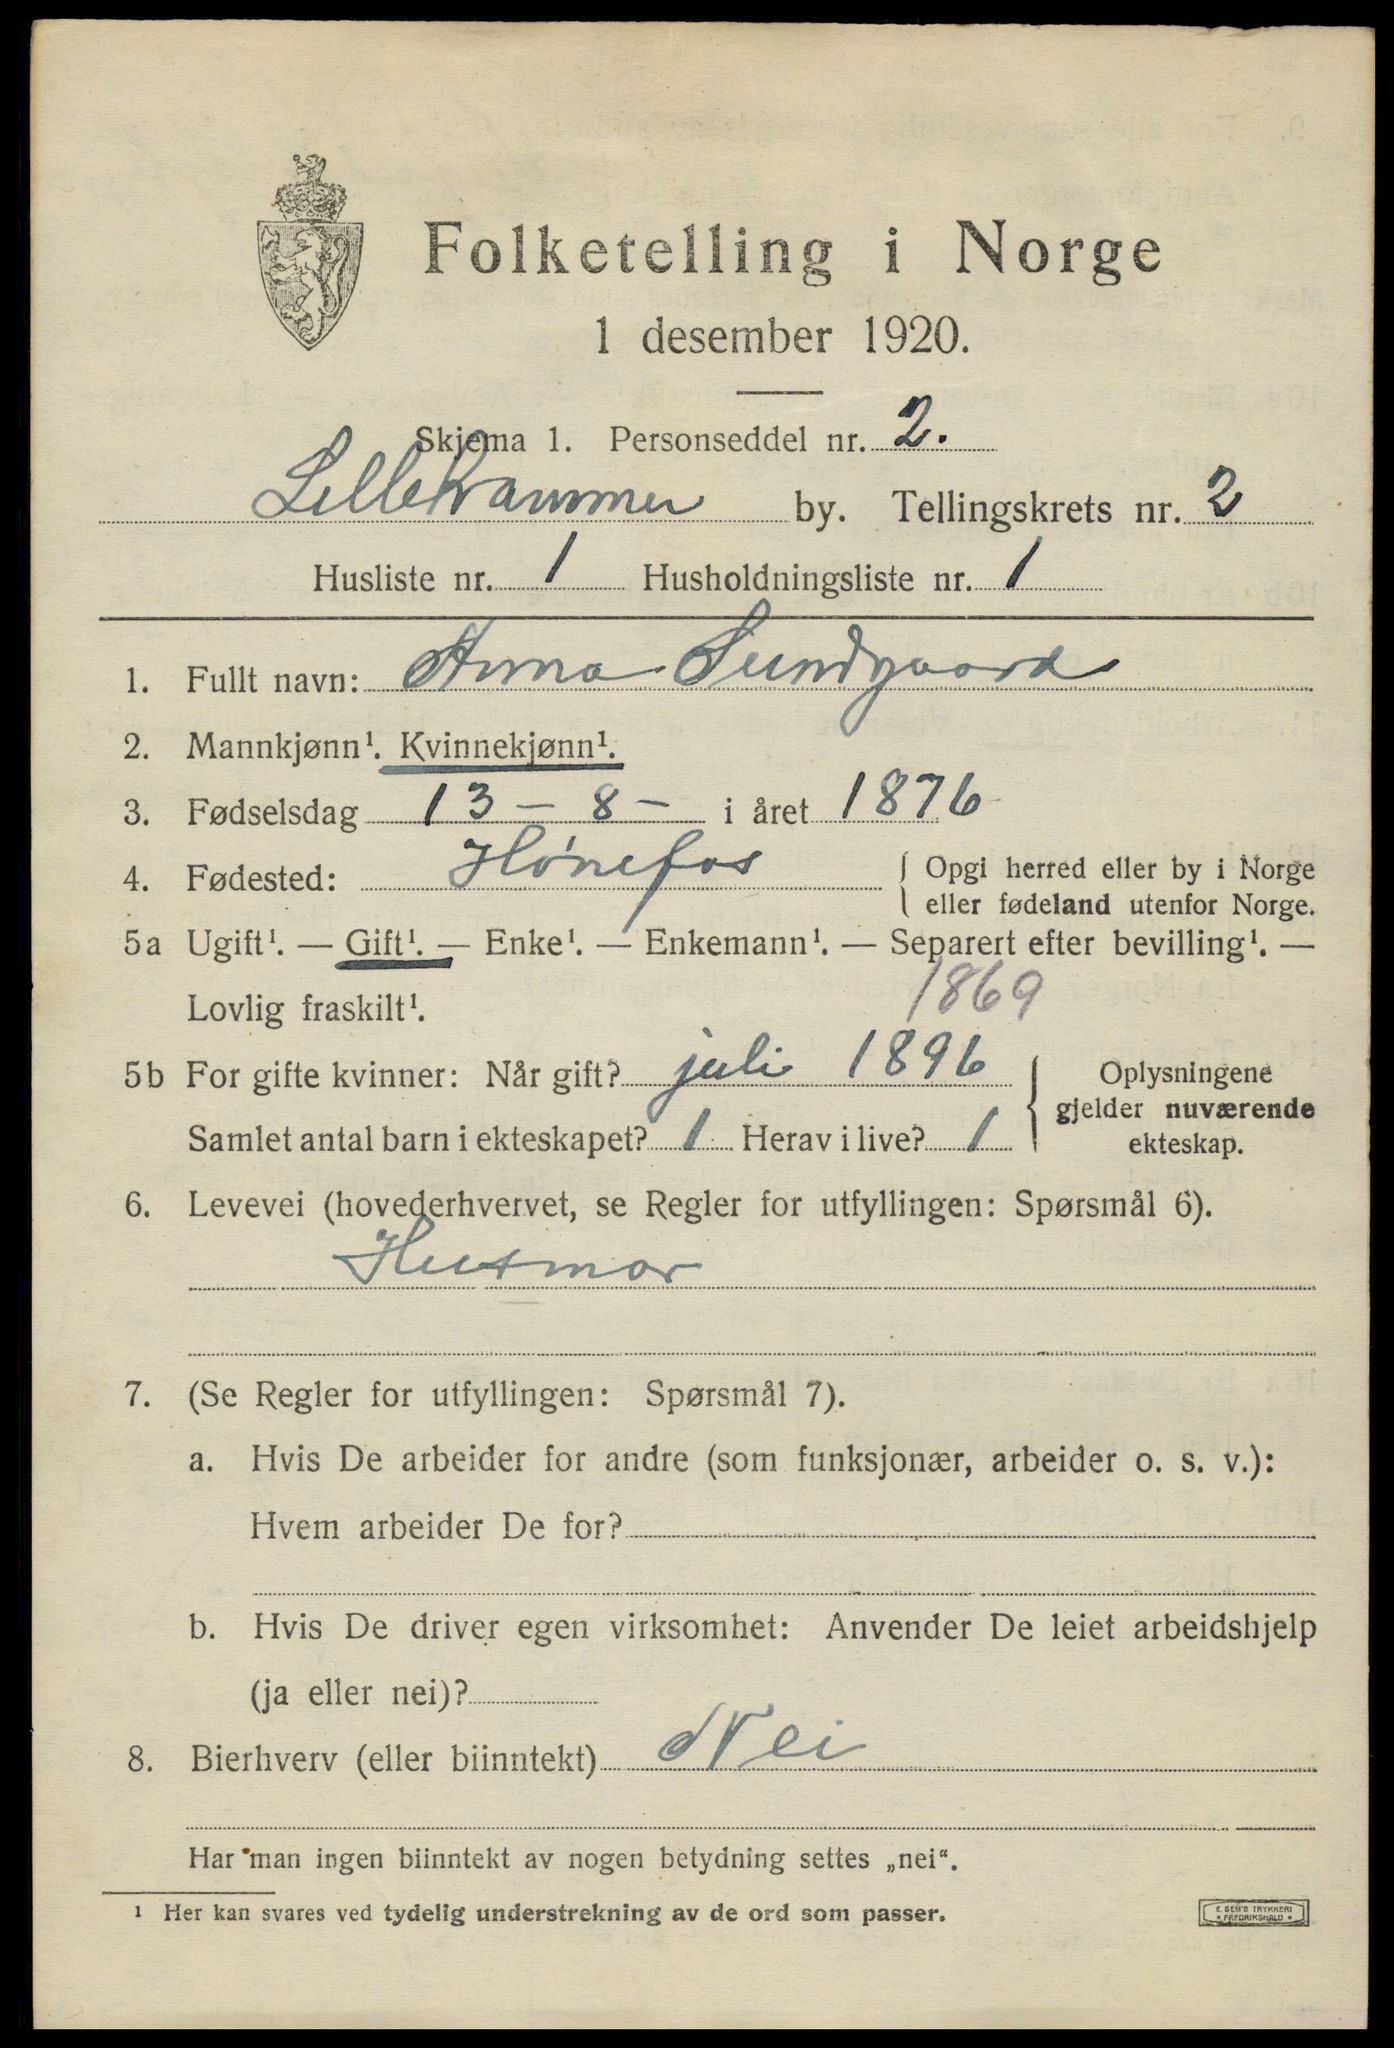 Folketelling i Norge
1 desember 1920.
Skjema 1. Personseddel nr. 2.
Lillehammer by. Tellingskrets nr. 2
Husliste nr. 1 Husholdningsliste nr. 1
1. Fullt navn: Anna Sundgaard
2. Mannkjønn¹. Kvinnekjønn¹.
3. Fødselsdag 13 – 8 – i året 1876
4. Fødested: Hønefos { Opgi herred eller by i Norge
eller fødeland utenfor Norge.
5a Ugift¹. — Gift¹. — Enke¹. — Enkemann¹. — Separert efter bevilling¹. —
Lovlig fraskilt¹. 1869
5b For gifte kvinner: Når gift? juli 1896
Samlet antal barn i ekteskapet? 1 Herav i live? 1
Oplysningene
gjelder nuværende
ekteskap.
6. Levevei (hovederhvervet, se Regler for utfyllingen: Spørsmål 6).
Husmor
7. (Se Regler for utfyllingen: Spørsmål 7).
a. Hvis De arbeider for andre (som funksjonær, arbeider o. s. v.):
Hvem arbeider De for?
b. Hvis De driver egen virksomhet: Anvender De leiet arbeidshjelp
(ja eller nei)?
8. Bierhverv (eller biinntekt) Nei
Har man ingen biinntekt av nogen betydning settes „nei“.
¹ Her kan svares ved tydelig understrekning av de ord som passer.
E. SEM'S TRYKKERI
FREDRIKSHALD